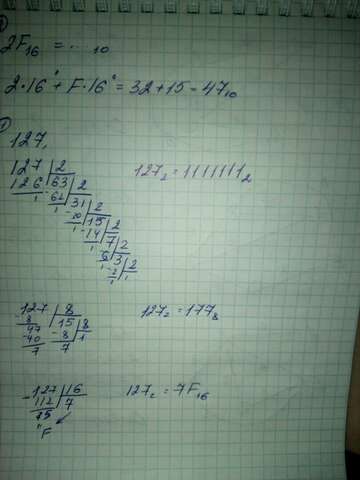 2F₁₆ = ... ₁₀
2·16¹ + F·16⁰ = 32 + 15 - 47₁₀
127,
127 | 2
126 | 63 | 2
1 - 62 | 31 | 2
1 - 30 | 15 | 2
1 - 14 | 7 | 2
1 6 | 3 | 2
1 - 2 | 1
1
127₂ = 1111111₂
127 | 8
8 | 15 | 8
47 - 8 | 1
-40 7
7
127₂ = 177₈
-127 | 16
112 | 7
15
"F
127₂ = 7F₁₆